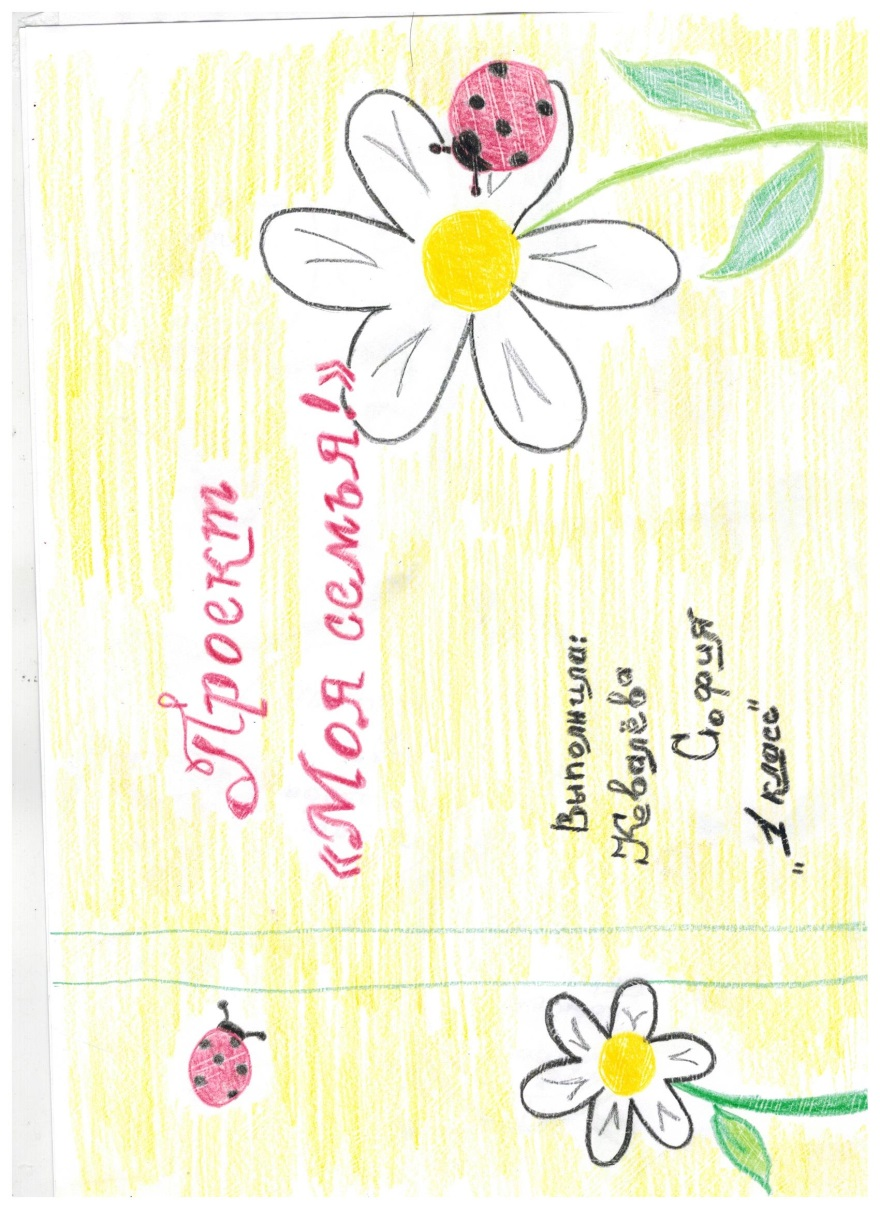 Проект
«Моя семья!»
Выполнила:
Ковалёва
София
"1 класс"